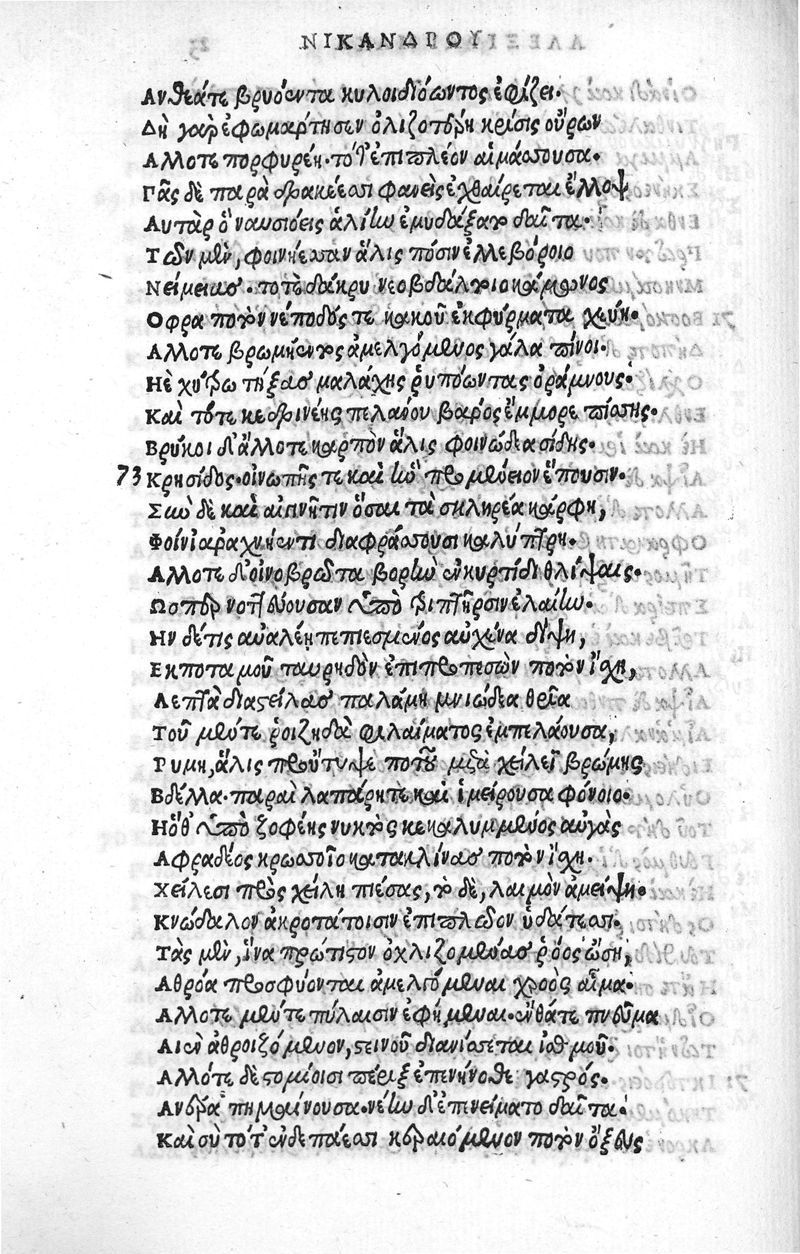 ΝΙΚΑΝΔΡΟΥ
Ανθεά τε βρυόεντα κυλοιδιόωντος ἐφίζει.
Δὴ γὰρ ἐφωμάρτησεν ὀλιζοτέρη κρίσις οὔρων
Αλλοτε πορφυρέη. τὸ δ' ἐπιπλέον αἱμάσσουσα.
Γᾶς δὲ παρὰ δρακέεσσι φανεὶς ἐχθαίρεται ἔλλοψ
Αυτὰρ ὁ ναυσιόεις ἁλίῳ ἐμυδάξατο δαῖτα.
Τῶν μὲν, φοινήεσσαν ἅλις πόσιν ἐλλεβόροιο
Νείμειας. τοτὲ δάκρυ νεοβδάλτοιο κάμωνος
Οφρα ποτὸν νέποδός τε κακοῦ ἐκφύρματα χεύῃ.
Αλλοτε βρωμήεντος ἀμελγόμενος γάλα πίνοι.
Ηὲ χύτρῳ τήξας μαλάχης ῥυπόωντας ὀράμνους.
Καί τότε κεδρινέης πελάνου βάρος ἔμμορε πίσσης.
Βρύκοι δ' ἄλλοτε καρπὸν ἅλις φοινώδεα σίδης.
73 Κρησίδος. οἰνωπῆς τε καὶ ἣν προμένειον ἕπουσιν.
Σὺν δὲ καὶ αἰγινῆτιν ὅσαι τὰ σκληρέα κάρφη,
Φοινίᾳ ἀραχνήεντι διαφράσσουσι καλύπτρῃ.
Αλλοτε δ' οἰνοβρῶτα βορὴν ἐν κυρτίδι θλίψαις.
Ωσπερ νοτέουσαν ὑπὸ τριπτῆρσιν ἐλαίην.
Ην δέ τις αὐαλέῃ πεπιεσμένος αὐχένα δίψῃ,
Εκ ποταμοῦ ταυρηδὸν ἐπιπροπεσὼν ποτὸν ἴσχῃ,
Λεπτὰ διαστείλας παλάμῃ μνιώδεα θρῖα
Τοῦ μέν τε ῥοιζηδὰ φιλαίματος ἐμπελάουσα,
Τύμη, ἅλις προὔτυψε ποτοῦ μέτα χείλεϊ βρώμης
Βδέλλα. πάραι λαπαρή τε καὶ ἱμείρουσα φόνοιο.
Η ὅθ' ὑπὸ ζοφέης νυκτὸς κεκαλυμμένος αὐγὰς
Αφραδέος κρωσσοῖο κατακλίνας ποτὸν ἴσχῃ.
Χείλεσι πρὸς χείλη πιέσας, τὸ δὲ, λαιμὸν ἀμείψῃ.
Κνώδαλον ἀκροτάτοισιν ἐπιπλῶον ὑδάτεσσι.
Τὰς μὲν, ἵνα πρώτιστον ὀχλιζομένας ῥόος ὤσῃ,
Αθρόα προσφύονται ἀμελγόμεναι χροὸς αἷμα.
Αλλοτε μέν τε πύλαισιν ἐφήμεναι. ἔνθά τε πνεῦμα
Αἰὲν ἀθροιζόμενον, στεινοῦ διανίσεται ἰσθμοῦ.
Αλλότε δὲ στομίοισι πέριξ ἐπενήνοθε γαστρός.
Ανδρα πημαίνουσα. νέην δ' ἐπινείματο δαῖτα.
Καὶ σὺ τότ' ἐν δεπάεσσι κεραιόμενον ποτὸν ὄξευς